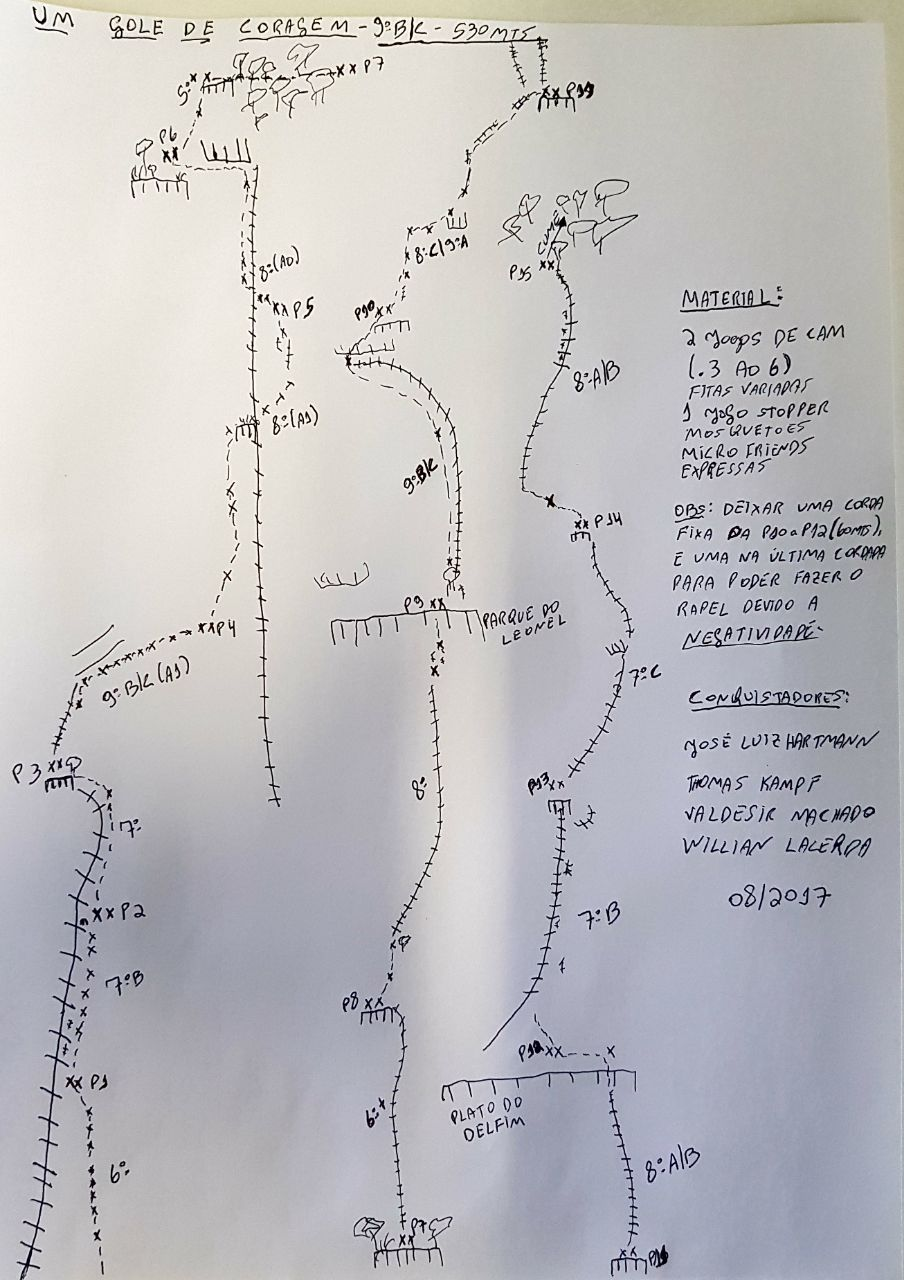 UM GOLE DE CORAGEM - 9º B/C - 530 MTS
5º
P7
P6
8º (A0)
P5
8º (A1)
P4
9º B/C (A1)
P3
7º
P2
7º B
P1
6º
P11
8º C/9º A
P10
9º B/C
P9
PARQUE DO
LEONEL
8º
P8
6º+
P7
CUME
P15
8º A/B
P14
7º C
P13
7º B
P12
PLATO DO
DELFIM
8º A/B
P11
MATERIAL:
2 JOGOS DE CAM
(.3 AO 6)
FITAS VARIADAS
1 JOGO STOPPER
MOSQUETOES
MICRO FRIENDS
EXPRESSAS
OBS: DEIXAR UMA CORDA
FIXA DA P10 a P12 (60MTS),
E UMA NA ÚLTIMA CORDADA
PARA PODER FAZER O
RAPEL DEVIDO A
NEGATIVIDADE
CONQUISTADORES:
JOSÉ LUIZ HARTMANN
THOMAS KAMPF
VALDESIR MACHADO
WILLIAN LACERDA
08/2017